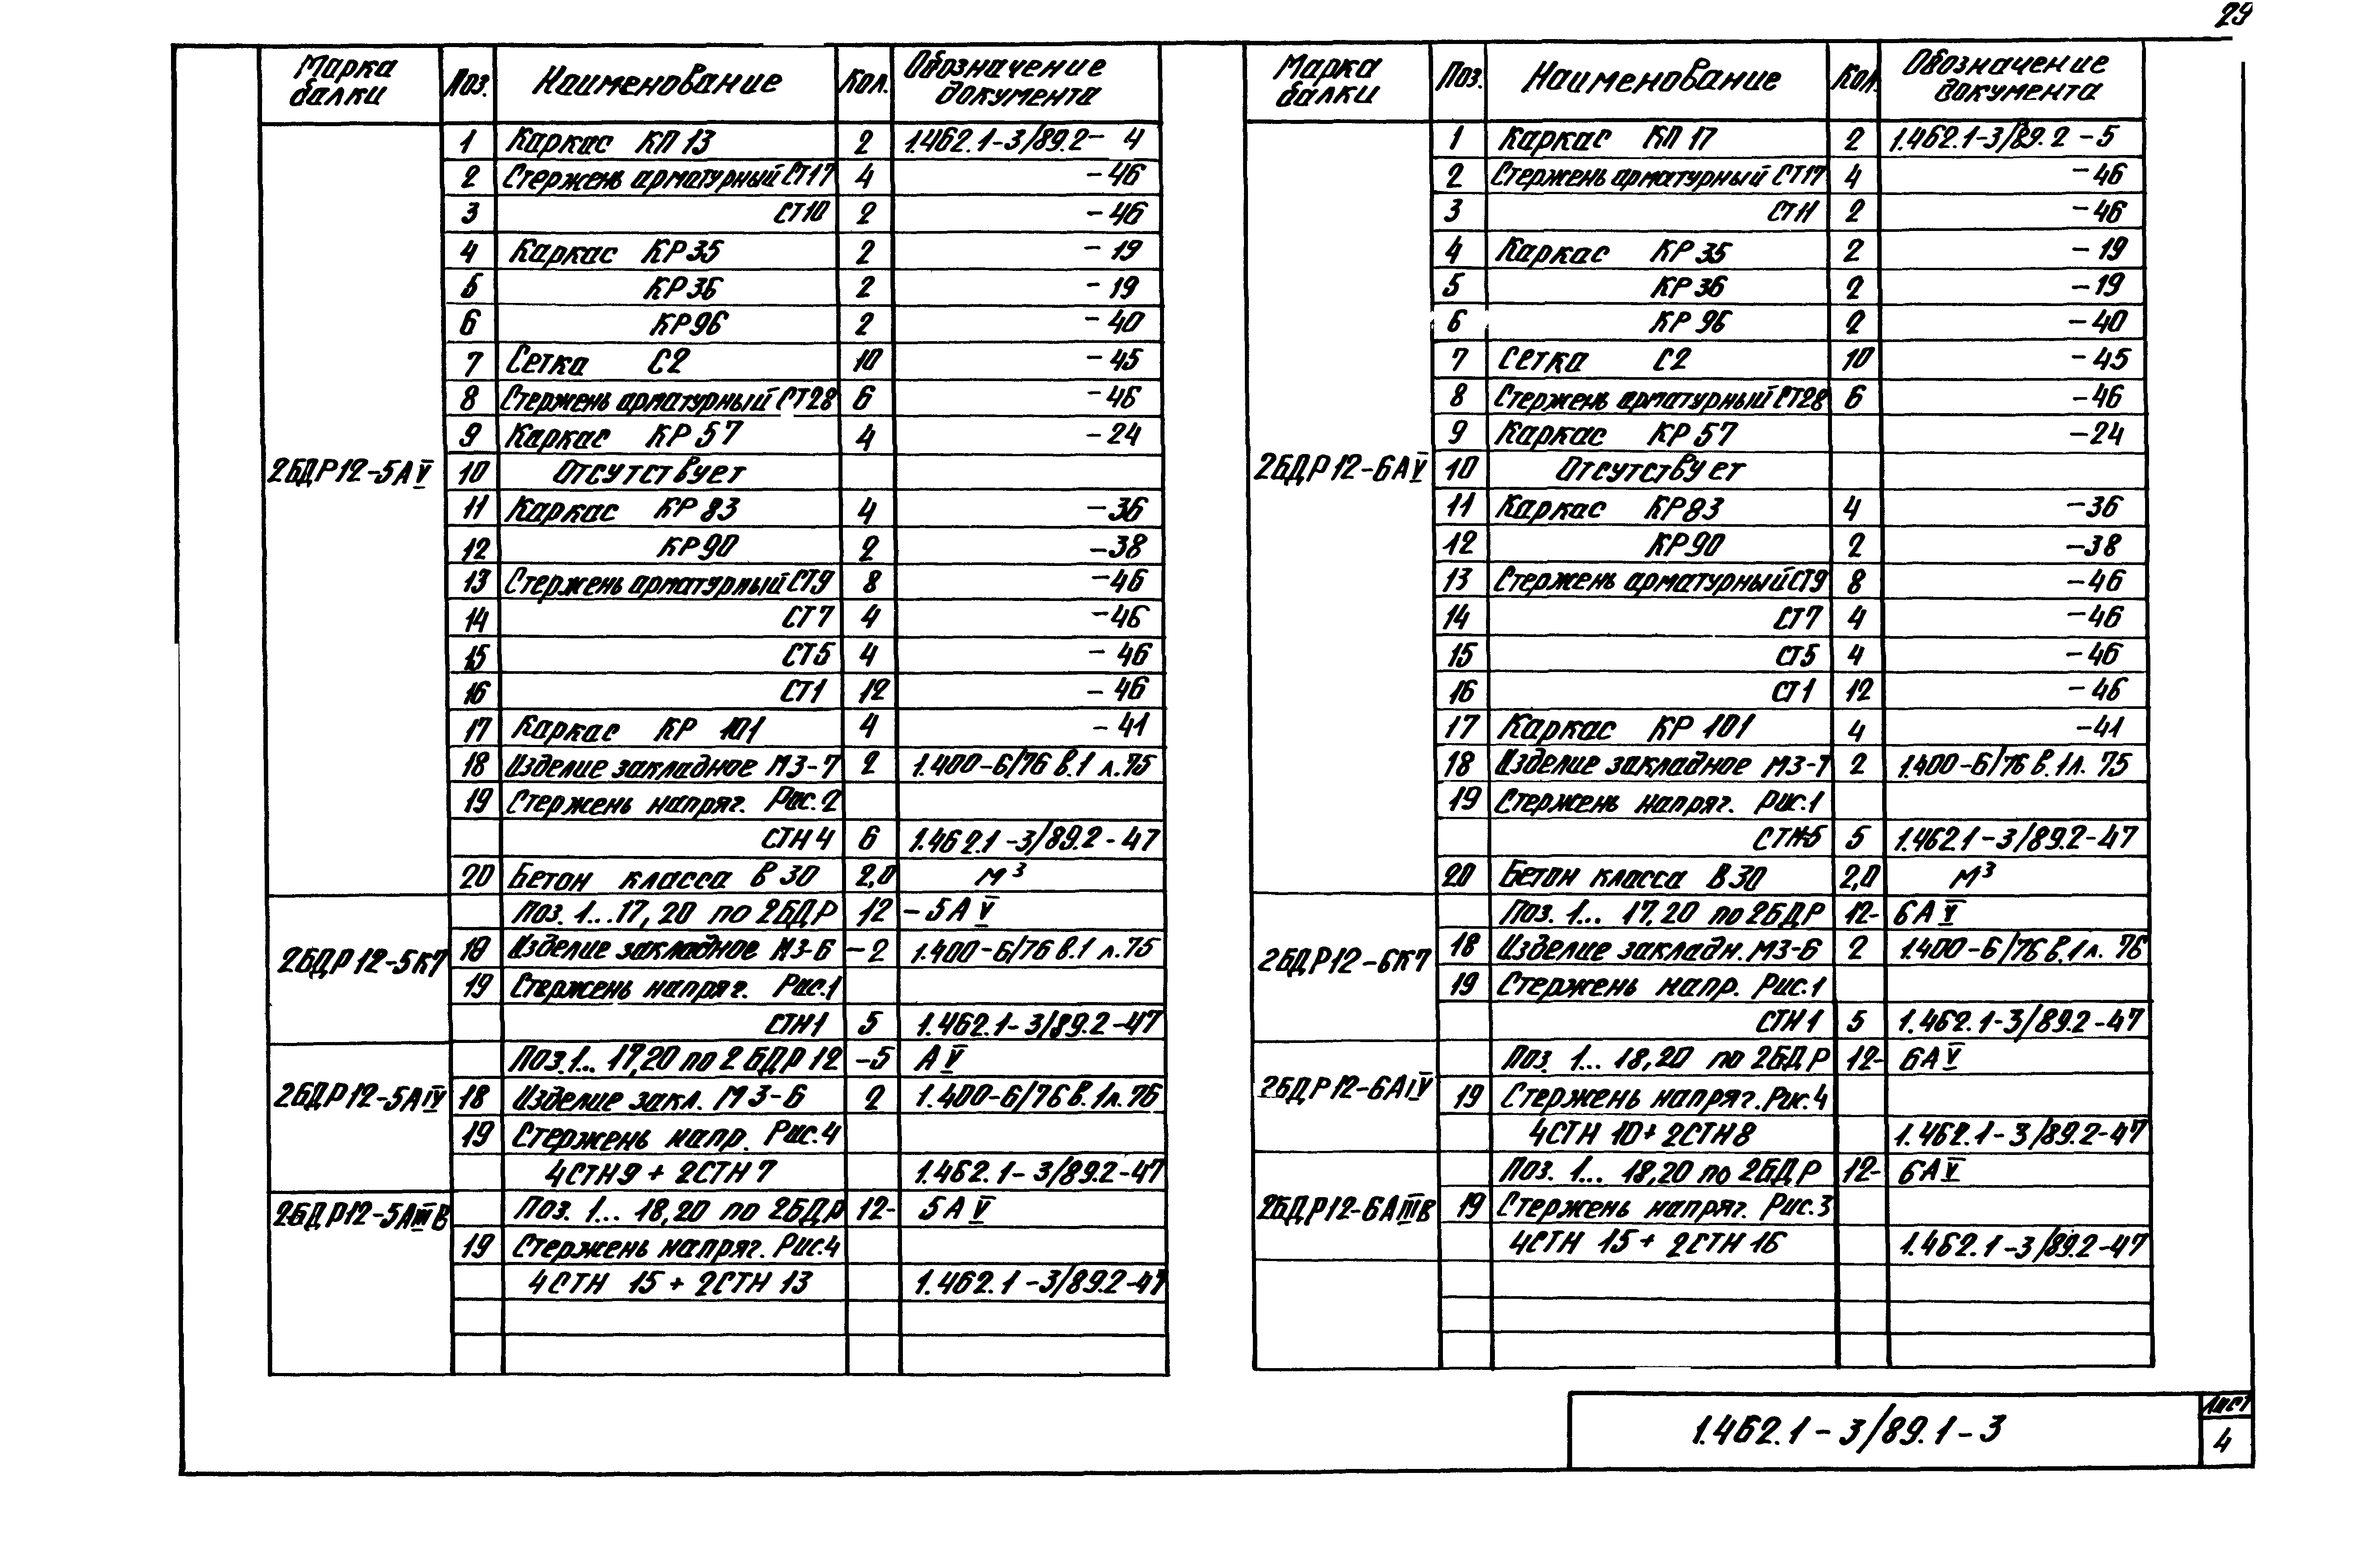 29
Марка балки Поз. Наименование Кол. Обозначение документа
2БДР12-5АV
1 Каркас КП 13 2 1.462.1-3/89.2- 4
2 Стержень арматурный СТ17 4 -46
3 СТ10 2 -46
4 Каркас КР35 2 -19
5 КР36 2 -19
6 КР96 2 -40
7 Сетка С2 10 -45
8 Стержень арматурный СТ28 6 -46
9 Каркас КР57 4 -24
10 Отсутствует
11 Каркас КР83 4 -36
12 КР90 2 -38
13 Стержень арматурный СТ9 8 -46
14 СТ7 4 -46
15 СТ5 4 -46
16 СТ1 12 -46
17 Каркас КР 101 4 -41
18 Изделие закладное МЗ-7 2 1.400-6/76 в.1 л.75
19 Стержень напряг. Рис.2
СТН4 6 1.462.1-3/89.2-47
20 Бетон класса В30 2,0 м³
2БДР12-5К7
Поз. 1...17, 20 по 2БДР 12 -5АV
18 Изделие закладное МЗ-6 -2 1.400-6/76 в.1 л.75
19 Стержень напряг. Рис.1
СТН1 5 1.462.1-3/89.2-47
2БДР12-5АIV
Поз.1... 17,20 по 2БДР12 -5 АV
18 Изделие закл. МЗ-6 2 1.400-6/76 в.1л.76
19 Стержень напр. Рис.4
4СТН9 + 2СТН7 1.462.1-3/89.2-47
2БДР12-5АIIIВ
Поз. 1... 18,20 по 2БДР 12- 5АV
19 Стержень напряг. Рис.4
4СТН 15 + 2СТН 13 1.462.1-3/89.2-47
Марка балки Поз. Наименование Кол. Обозначение документа
2БДР12-6АV
1 Каркас КП 17 2 1.462.1-3/89.2-5
2 Стержень арматурный СТ17 4 -46
3 СТ11 2 -46
4 Каркас КР35 2 -19
5 КР36 2 -19
6 КР96 2 -40
7 Сетка С2 10 -45
8 Стержень арматурный СТ28 6 -46
9 Каркас КР57 -24
10 Отсутствует
11 Каркас КР83 4 -36
12 КР90 2 -38
13 Стержень арматурный СТ9 8 -46
14 СТ7 4 -46
15 СТ5 4 -46
16 СТ1 12 -46
17 Каркас КР 101 4 -41
18 Изделие закладное МЗ-7 2 1.400-6/76 в.1л. 75
19 Стержень напряг. Рис.1
СТН5 5 1.462.1-3/89.2-47
20 Бетон класса В30 2,0 м³
2БДР12-6К7
Поз. 1... 17,20 по 2БДР 12- 6АV
18 Изделие закладн. МЗ-6 2 1.400-6/76 в.1л. 76
19 Стержень напр. Рис.1
СТН1 5 1.462.1-3/89.2-47
2БДР12-6АIV
Поз. 1... 18,20 по 2БДР 12- 6АV
19 Стержень напряг. Рис.4
4СТН 10+ 2СТН8 1.462.1-3/89.2-47
2БДР12-6АIIIВ
Поз. 1... 18,20 по 2БДР 12- 6АV
19 Стержень напряг. Рис.3
4СТН 15 + 2СТН 16 1.462.1-3/89.2-47
1.462.1-3/89.1-3
Лист
4